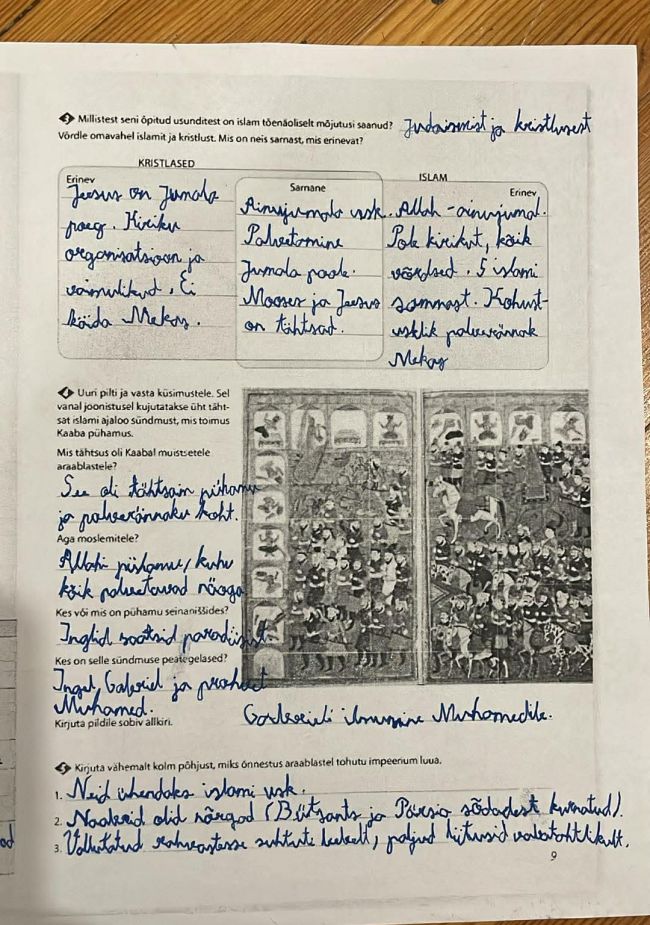 3 Millistest seni õpitud usunditest on islam tõenäoliselt mõjutusi saanud? Judaismist ja kristlusest
Võrdle omavahel islamit ja kristlust. Mis on neis sarnast, mis erinevat?
KRISTLASED
Erinev
Jeesus on Jumala
poeg. Kiriku
organisatsioon ja
vaimulikud. Ei
käida Mekas.
Sarnane
Ainujumala usk.
Palvetamine
Jumala poole.
Mooses ja Jeesus
on tähtsad.
ISLAM
Erinev
Allah - ainujumal.
Pole kirikut, kõik
võrdsed. 5 islami
sammast. Kohust-
uslik palverännak
Mekas
4 Uuri pilti ja vasta küsimustele. Sel
vanal joonistusel kujutatakse üht täht-
sat islami ajaloo sündmust, mis toimus
Kaaba pühamus.
Mis tähtsus oli Kaabal muistsetele
araablastele?
See oli tähtsaim pühamu
ja palverännaku koht.
Aga moslemitele?
Allahi pühamu, kuhu
kõik palvetavad näoga
Kes või mis on pühamu seinaniššides?
Inglid saatsid paradiisist
Kes on selle sündmuse peategelased?
Ingel Gabriel ja prohvet
Muhamed.
Kirjuta pildile sobiv allkiri.
Gabrieli ilmumine Muhamedile.
5 Kirjuta vähemalt kolm põhjust, miks õnnestus araablastel tohutu impeerium luua.
1. Neid ühendaks islami usk.
2. Naabrid olid nõrgad (Bütsants ja Pärsia sõdadest kurnatud).
3. Vallutatud rahvastesse suhtuti leebelt, paljud liitusid vabatahtlikult.
9